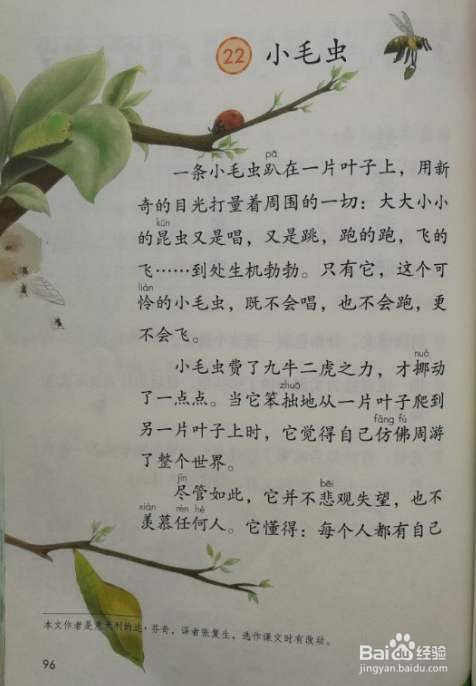 22 小毛虫
pā
一条小毛虫趴在一片叶子上，用新
奇的目光打量着周围的一切：大大小小
kūn
的昆虫又是唱，又是跳，跑的跑，飞的
飞……到处生机勃勃。只有它，这个可
lián
怜的小毛虫，既不会唱，也不会跑，更
不会飞。
nuó
小毛虫费了九牛二虎之力，才挪动
zhuō
了一点点。当它笨拙地从一片叶子爬到
fǎng fú
另一片叶子上时，它觉得自己仿佛周游
了整个世界。
jǐn bēi
尽管如此，它并不悲观失望，也不
xiàn rèn hé
羡慕任何人。它懂得：每个人都有自己
本文作者是意大利的达·芬奇，译者张复生，选作课文时有改动。
96
Bai 百度经验
jingyan.baidu.com